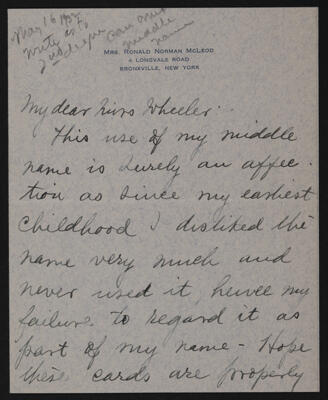 May 16
write as to
Can omit
middle
name
MRS. RONALD NORMAN MCLEOD
4 LONGVALE ROAD
BRONXVILLE, NEW YORK
My dear Miss Wheeler:
This use of my middle
name is surely an affec-
tion as since my earliest
childhood I disliked the
name very much and
never used it, hence my
failure to regard it as
part of my name - Hope
these cards are properly